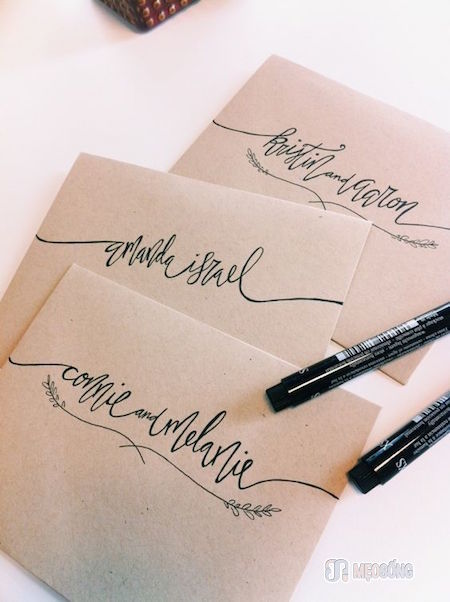 kristin and aaron
amanda israel
connie and melanie
MẸOSỐNG